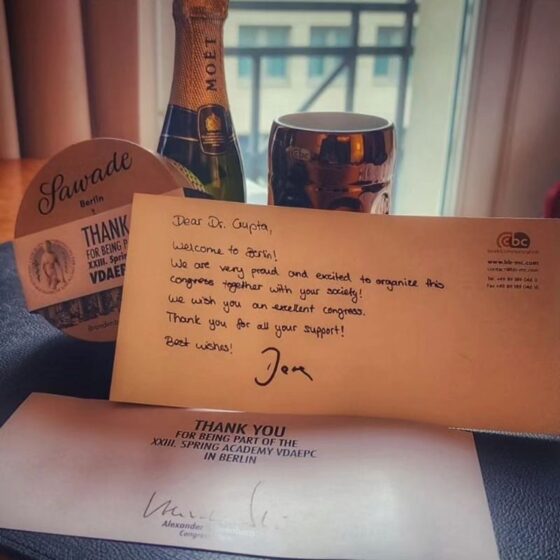 MOËT
Sawade
Berlin
THANK
FOR BEING PAR
XXIII. Spring
VDAEP
Dear Dr. Gupta,
Welcome to Berlin!
We are very proud and excited to organize this
congress together with your society!
We wish you an excellent congress.
Thank you for all your support!
Best wishes!
bbc
www.bb-mc.com
THANK YOU
FOR BEING PART OF THE
XXIII. SPRING ACADEMY VDAEPC
IN BERLIN
Alexander
Congress